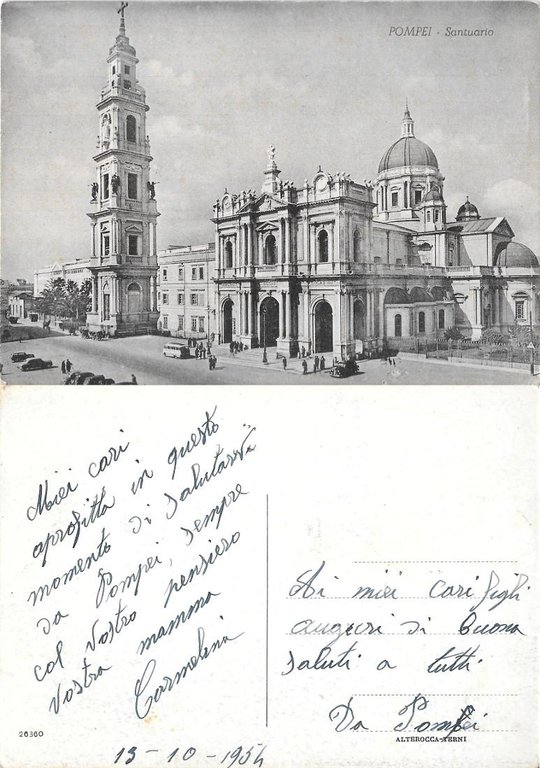 POMPEI - Santuario
Miei cari
aprofitto in questo
momento di salutarvi
da Pompei, sempre
col vostro pensiero
vostra mamma
Carmelina
Ai miei cari figli
auguri di buona
saluti a tutti
Da Pompei
26360
ALTEROCCA-TERNI
13-10-1954